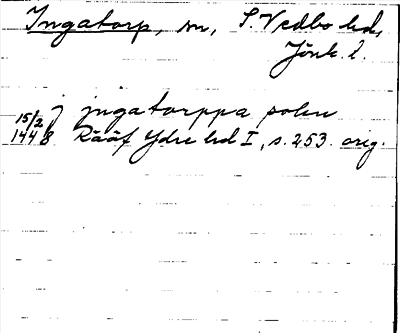 Ingatorp, sn, S. Vedbo hd,
Jönk. l.
15/2 J jngatorppa sokn
1448 Rääf Ydre hd I, s. 253. orig.